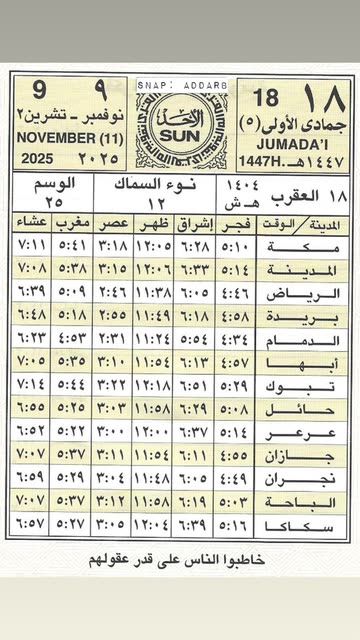 SNAP: ADDARB
18 ١٨
جمادى الأولى (٥)
JUMADA'I
1447H. ١٤٤٧هـ
الأحد
SUN
9 ٩
نوفمبر - تشرين٢
NOVEMBER (11)
2025 ٢٠٢٥
١٨ العقرب ١٤٠٤ هـ ش نوء السماك ١٢ الوسم ٢٥
المدينة / الوقت فجر إشراق ظهر عصر مغرب عشاء
مكة ٥:١٠ ٦:٢٨ ١٢:٠٥ ٣:١٨ ٥:٤١ ٧:١١
المدينة ٥:١٤ ٦:٣٣ ١٢:٠٦ ٣:١٥ ٥:٣٨ ٧:٠٨
الرياض ٤:٤٦ ٦:٠٥ ١١:٣٨ ٢:٤٦ ٥:٠٩ ٦:٣٩
بريدة ٤:٥٨ ٦:١٨ ١١:٤٩ ٢:٥٥ ٥:١٨ ٦:٤٨
الدمام ٤:٣٤ ٥:٥٤ ١١:٢٤ ٢:٣١ ٤:٥٣ ٦:٢٣
أبها ٤:٥٧ ٦:١٣ ١١:٥٤ ٣:١٠ ٥:٣٥ ٧:٠٥
تبوك ٥:٢٩ ٦:٥١ ١٢:١٨ ٣:٢٢ ٥:٤٤ ٧:١٤
حائل ٥:٠٨ ٦:٢٩ ١١:٥٨ ٣:٠٣ ٥:٢٥ ٦:٥٥
عرعر ٥:١٤ ٦:٣٧ ١٢:٠٠ ٣:٠٠ ٥:٢٢ ٦:٥٢
جازان ٤:٥٥ ٦:١١ ١١:٥٤ ٣:١١ ٥:٣٧ ٧:٠٧
نجران ٤:٤٩ ٦:٠٥ ١١:٤٨ ٣:٠٤ ٥:٢٩ ٦:٥٩
الباحة ٥:٠٣ ٦:١٩ ١١:٥٨ ٣:١٢ ٥:٣٧ ٧:٠٧
سكاكا ٥:١٦ ٦:٣٩ ١٢:٠٤ ٣:٠٥ ٥:٢٧ ٦:٥٧
خاطبوا الناس على قدر عقولهم